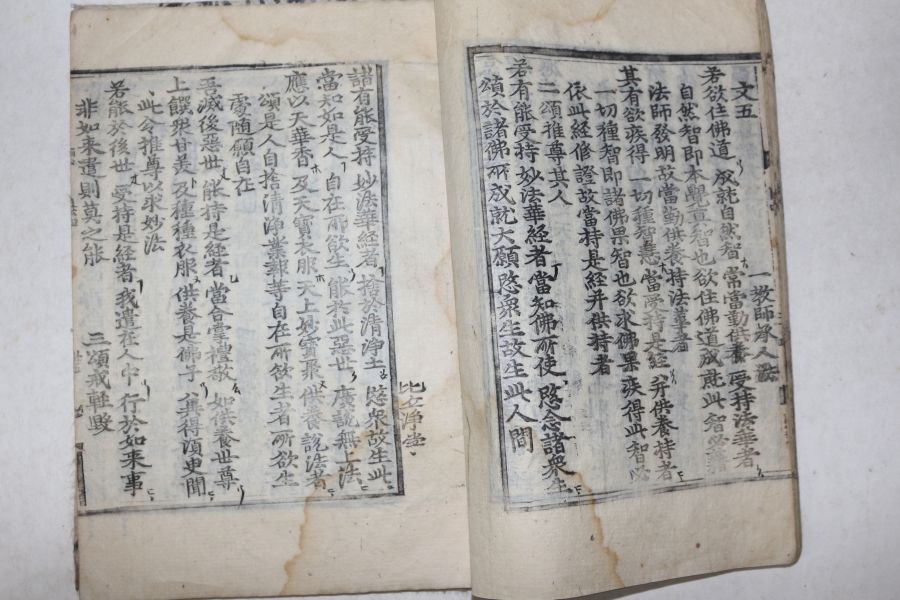 文五
一教師承人法
若欲住佛道 成就自然智 常當勤供養 受持法華者
自然智即本覺真智也欲住佛道成就此智必籍
法師發明故當勤供養持法華者
其有欲疾得 一切種智慧 當受持是經 并供養持者
一切種智即諸佛果智也欲求佛果疾得此智必
依此經修證故當持是經并供持者
二頌推尊其人
若有能受持 妙法華經者 當知佛所使 愍念諸衆生
頌於諸佛所成就大願愍衆生故生此人間
諸有能受持 妙法華經者 捨於清淨土 愍衆故生此
當知如是人 自在所欲生 能於此惡世 廣說無上法
應以天華香 及天寶衣服 天上妙寶聚 供養說法者
頌是人自捨清淨業報等自在所欲生者所欲生
處隨願自在
吾滅後惡世 能持是經者 當合掌禮敬 如供養世尊
上饌衆甘美 及種種衣服 供養是佛子 冀得須臾聞
此令推尊以求妙法
若能於後世 受持是經者 我遣在人中 行於如來事
非如來遣則莫之能
三頌戒輕毀